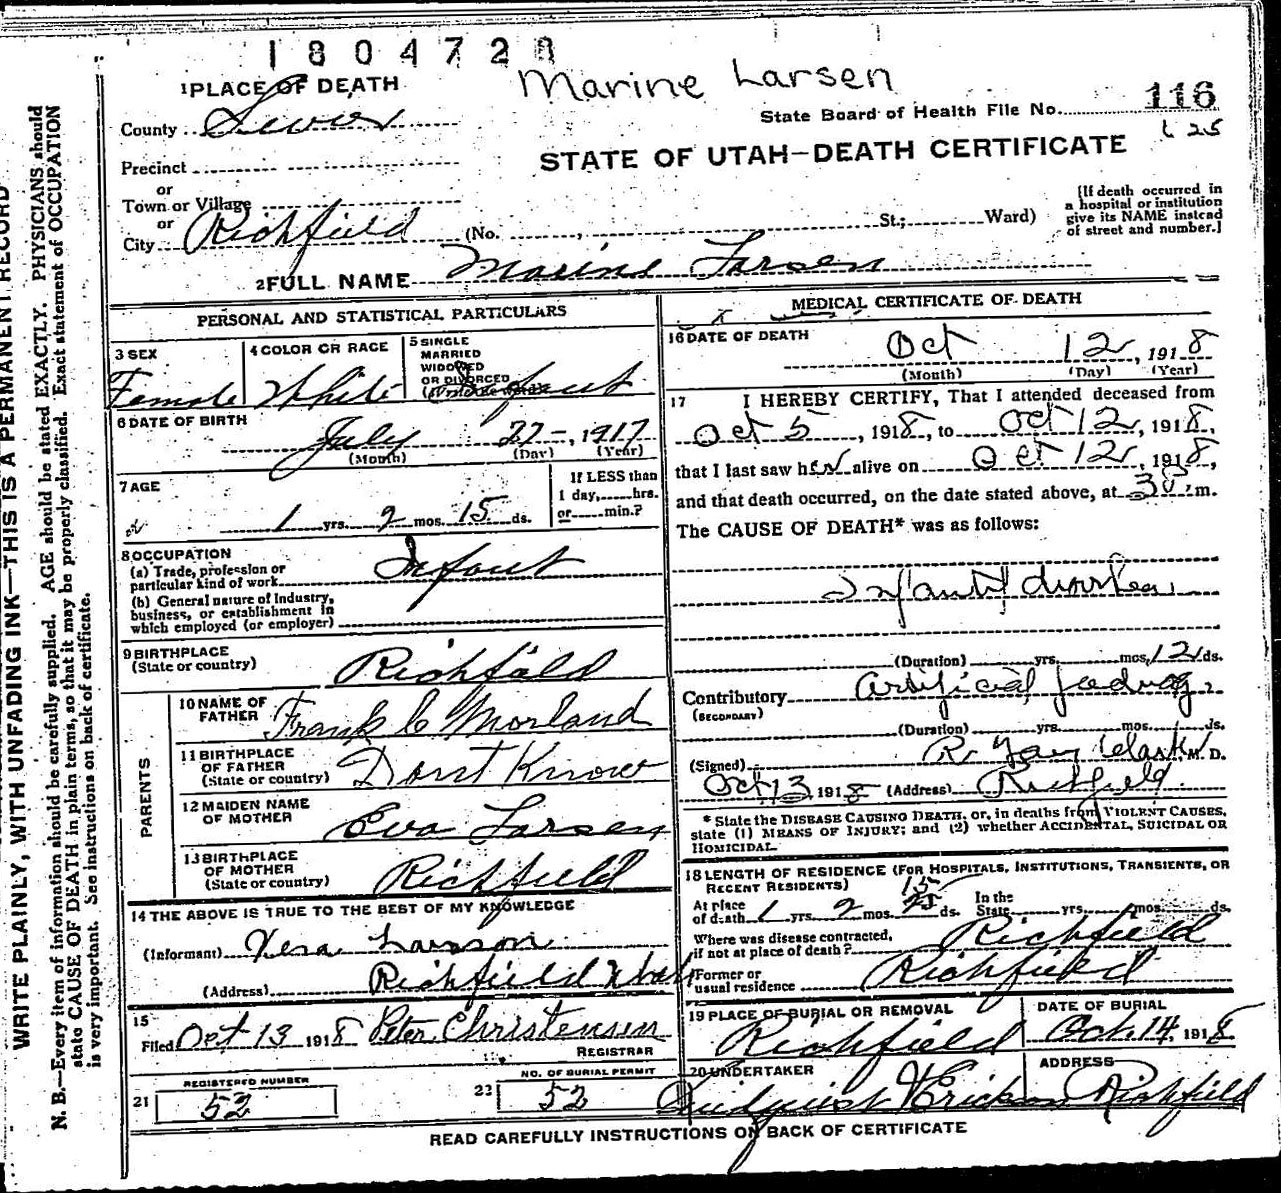 1804728
Marine Larsen
1 PLACE OF DEATH
County Sevier
State Board of Health File No. 116
125
STATE OF UTAH—DEATH CERTIFICATE
Precinct
or
Town or Village
or
City Richfield (No. , St.; Ward)
[If death occurred in a hospital or institution give its NAME instead of street and number.]
2 FULL NAME Marine Larsen
PERSONAL AND STATISTICAL PARTICULARS
3 SEX
Female
4 COLOR OR RACE
White
5 SINGLE
MARRIED
WIDOWED
OR DIVORCED
Infant
6 DATE OF BIRTH
July 27-, 1917
(Month) (Day) (Year)
7 AGE
1 yrs. 2 mos. 15 ds.
If LESS than
1 day, hrs.
or min.?
8 OCCUPATION
(a) Trade, profession or
particular kind of work Infant
(b) General nature of Industry,
business, or establishment in
which employed (or employer)
9 BIRTHPLACE
(State or country) Richfield
PARENTS
10 NAME OF
FATHER Frank C Morland
11 BIRTHPLACE
OF FATHER
(State or country) Dont Know
12 MAIDEN NAME
OF MOTHER Eva Larsen
13 BIRTHPLACE
OF MOTHER
(State or country) Richfield
14 THE ABOVE IS TRUE TO THE BEST OF MY KNOWLEDGE
(Informant) Vera Larson
(Address) Richfield Utah
15
Filed Oct 13 1918 Peter Christensen
REGISTRAR
REGISTERED NUMBER
21 52
NO. OF BURIAL PERMIT
22 52
MEDICAL CERTIFICATE OF DEATH
16 DATE OF DEATH
Oct 12, 1918
(Month) (Day) (Year)
17 I HEREBY CERTIFY, That I attended deceased from
Oct 5, 1918, to Oct 12, 1918,
that I last saw her alive on Oct 12, 1918,
and that death occurred, on the date stated above, at m.
The CAUSE OF DEATH* was as follows:
Infantil diarrhea
(Duration) yrs. mos. 12 ds.
Contributory Artificial feeding.
(SECONDARY)
(Duration) yrs. mos. ds.
(Signed) R. Gay Clark, M. D.
Oct 13 1918 (Address) Richfield.
* State the DISEASE CAUSING DEATH, or, in deaths from VIOLENT CAUSES,
state (1) MEANS OF INJURY; and (2) whether ACCIDENTAL, SUICIDAL OR
HOMICIDAL.
18 LENGTH OF RESIDENCE (FOR HOSPITALS, INSTITUTIONS, TRANSIENTS, OR
RECENT RESIDENTS)
15
At place
of death 1 yrs. 2 mos. 25 ds. In the State yrs. mos. ds.
Where was disease contracted,
if not at place of death? Richfield
Former or
usual residence Richfield
19 PLACE OF BURIAL OR REMOVAL
Richfield
DATE OF BURIAL
Oct. 14, 1918
20 UNDERTAKER
& Erickson
ADDRESS
Richfield
READ CAREFULLY INSTRUCTIONS ON BACK OF CERTIFICATE
WRITE PLAINLY, WITH UNFADING INK—THIS IS A PERMANENT RECORD
N. B.—Every item of information should be carefully supplied. AGE should be stated EXACTLY. PHYSICIANS should
state CAUSE OF DEATH in plain terms, so that it may be properly classified. Exact statement of OCCUPATION
is very important. See instructions on back of certificate.